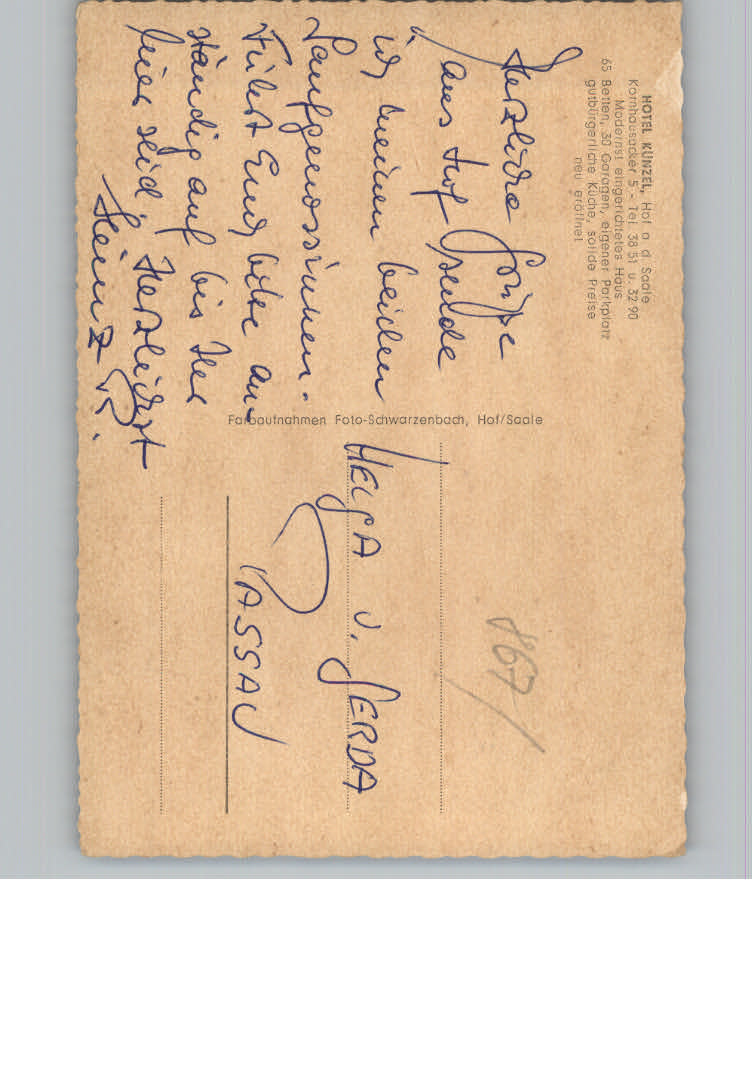 HOTEL KÜNZEL, Hof a. d. Saale
Kornhausacker 5 - Tel 38 51 u. 32 90
Modernst eingerichtetes Haus
65 Betten, 30 Garagen, eigener Parkplatz
gutbürgerliche Küche, solide Preise
neu eröffnet
Herzliche Grüße
aus Hof sende
ich meinen beiden
Saufgenossinnen.
Fühlt Euch bitte an-
ständig auf bis Ihr
hier seid. Herzlichst
Heinz
Farbaufnahmen Foto-Schwarzenbach, Hof/Saale
867/
HELGA U. GERDA
PASSAU